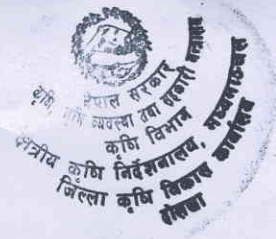 नेपाल सरकार
कृषि, भूमि व्यवस्था तथा सहकारी मन्त्रालय
कृषि विभाग
क्षेत्रीय कृषि निर्देशनालय, मध्यमाञ्चल
जिल्ला कृषि विकास कार्यालय